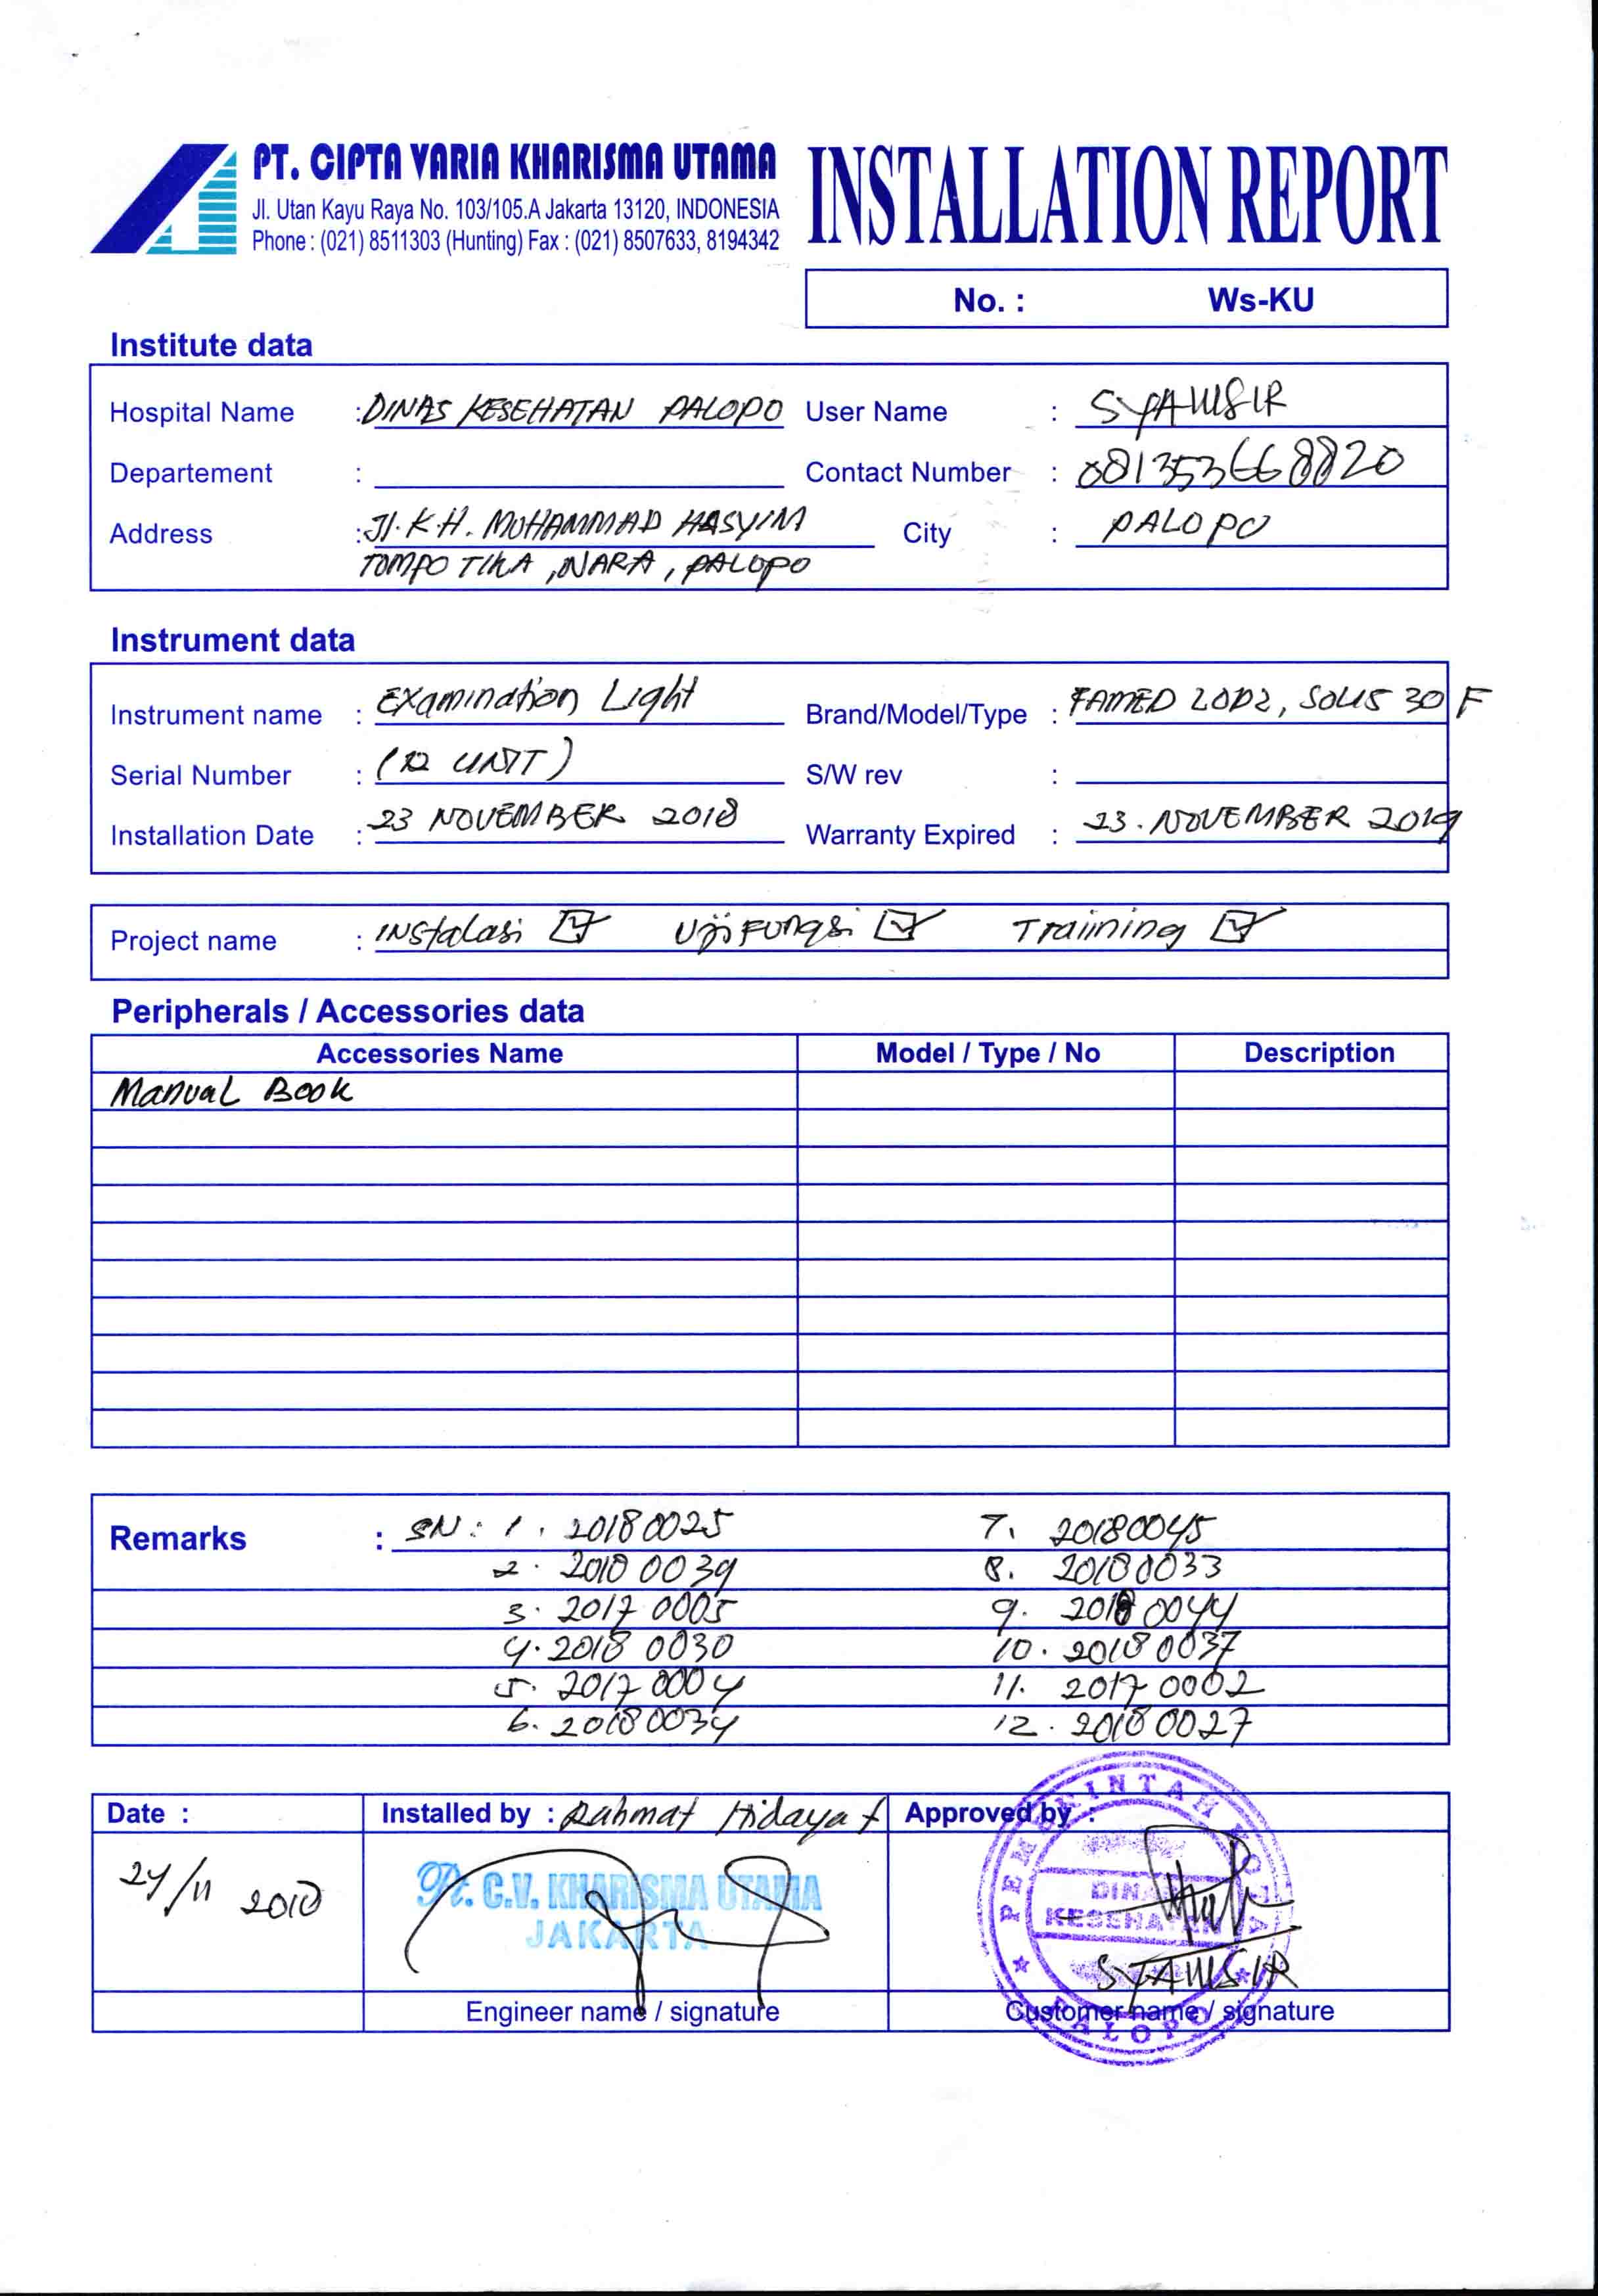 PT. CIPTA VARIA KHARISMA UTAMA
Jl. Utan Kayu Raya No. 103/105.A Jakarta 13120, INDONESIA
Phone : (021) 8511303 (Hunting) Fax : (021) 8507633, 8194342
INSTALLATION REPORT
No. : Ws-KU
Institute data
Hospital Name : DINAS KESEHATAN PALOPO User Name : SYAMSIR
Departement : Contact Number : 081353668820
Address : Jl. K.H. MUHAMMAD HASYIM City : PALOPO
TOMPOTIKA, WARA, PALOPO
Instrument data
Instrument name : Examination Light Brand/Model/Type : FAMED LODZ, SOLIS 30 F
Serial Number : (12 UNIT) S/W rev :
Installation Date : 23 NOVEMBER 2018 Warranty Expired : 23. NOVEMBER 2019
Project name : INStalasi ☑ Uji Fungsi ☑ Traiining ☑
Peripherals / Accessories data
Accessories Name Model / Type / No Description
Manual Book
Remarks : SN : 1. 20180025 7. 20180045
2. 2018 0039 8. 20180033
3. 2017 0005 9. 2018 0044
4. 2018 0030 10. 2018 0037
5. 2017 0004 11. 2017 0002
6. 2018 0034 12. 2018 0027
Date : Installed by : Rahmat Hidayat Approved by :
24/11 2018
Pt. C.V. KHARISMA UTAMA
JAKARTA
PEMERINTAH KOTA
DINAS
KESEHATAN
SYAMSIR
Engineer name / signature Customer name / signature
PALOPO